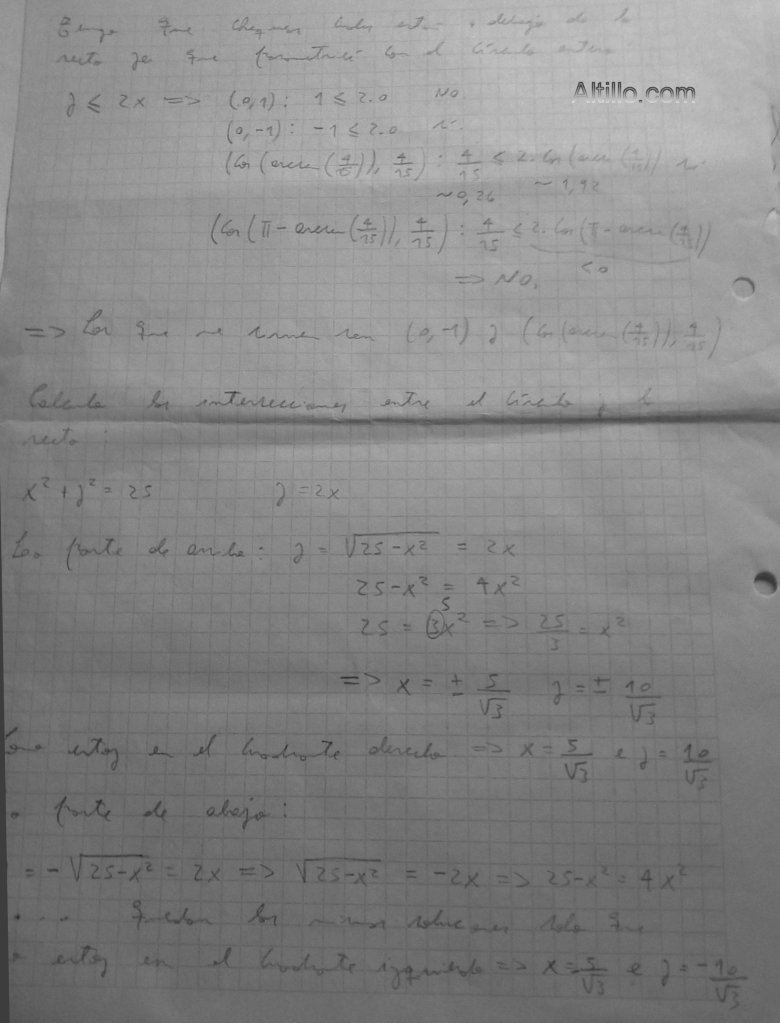 Tengo que chequear cuales están debajo de la
recta ya que parametricé con el círculo entero
Altillo.com
y ≤ 2x => (0,1): 1 ≤ 2.0 NO
(0,-1): -1 ≤ 2.0 si.
(Cos(arcsen(4/15)), 4/15): 4/15 ≤ 2.Cos(arcsen(4/15)) si
~0,26 ~1,92
(Cos(π-arcsen(4/15)), 4/15): 4/15 ≤ 2.Cos(π-arcsen(4/15))
<0
=> NO.
=> Los que me sirven son (0,-1) y (Cos(arcsen(4/15)), 4/15)
Calculo las intersecciones entre el círculo y la
recta:
x² + y² = 25 y = 2x
La parte de arriba: y = √25-x² = 2x
25-x² = 4x²
5
25 = 3x² => 25/3 = x²
=> x = ± 5/√3 y = ± 10/√3
Como estoy en el cuadrante derecho => x = 5/√3 e y = 10/√3
parte de abajo:
= -√25-x² = 2x => √25-x² = -2x => 25-x² = 4x²
... quedan las mismas soluciones solo que
estoy en el cuadrante izquierdo => x = 5/√3 e y = -10/√3